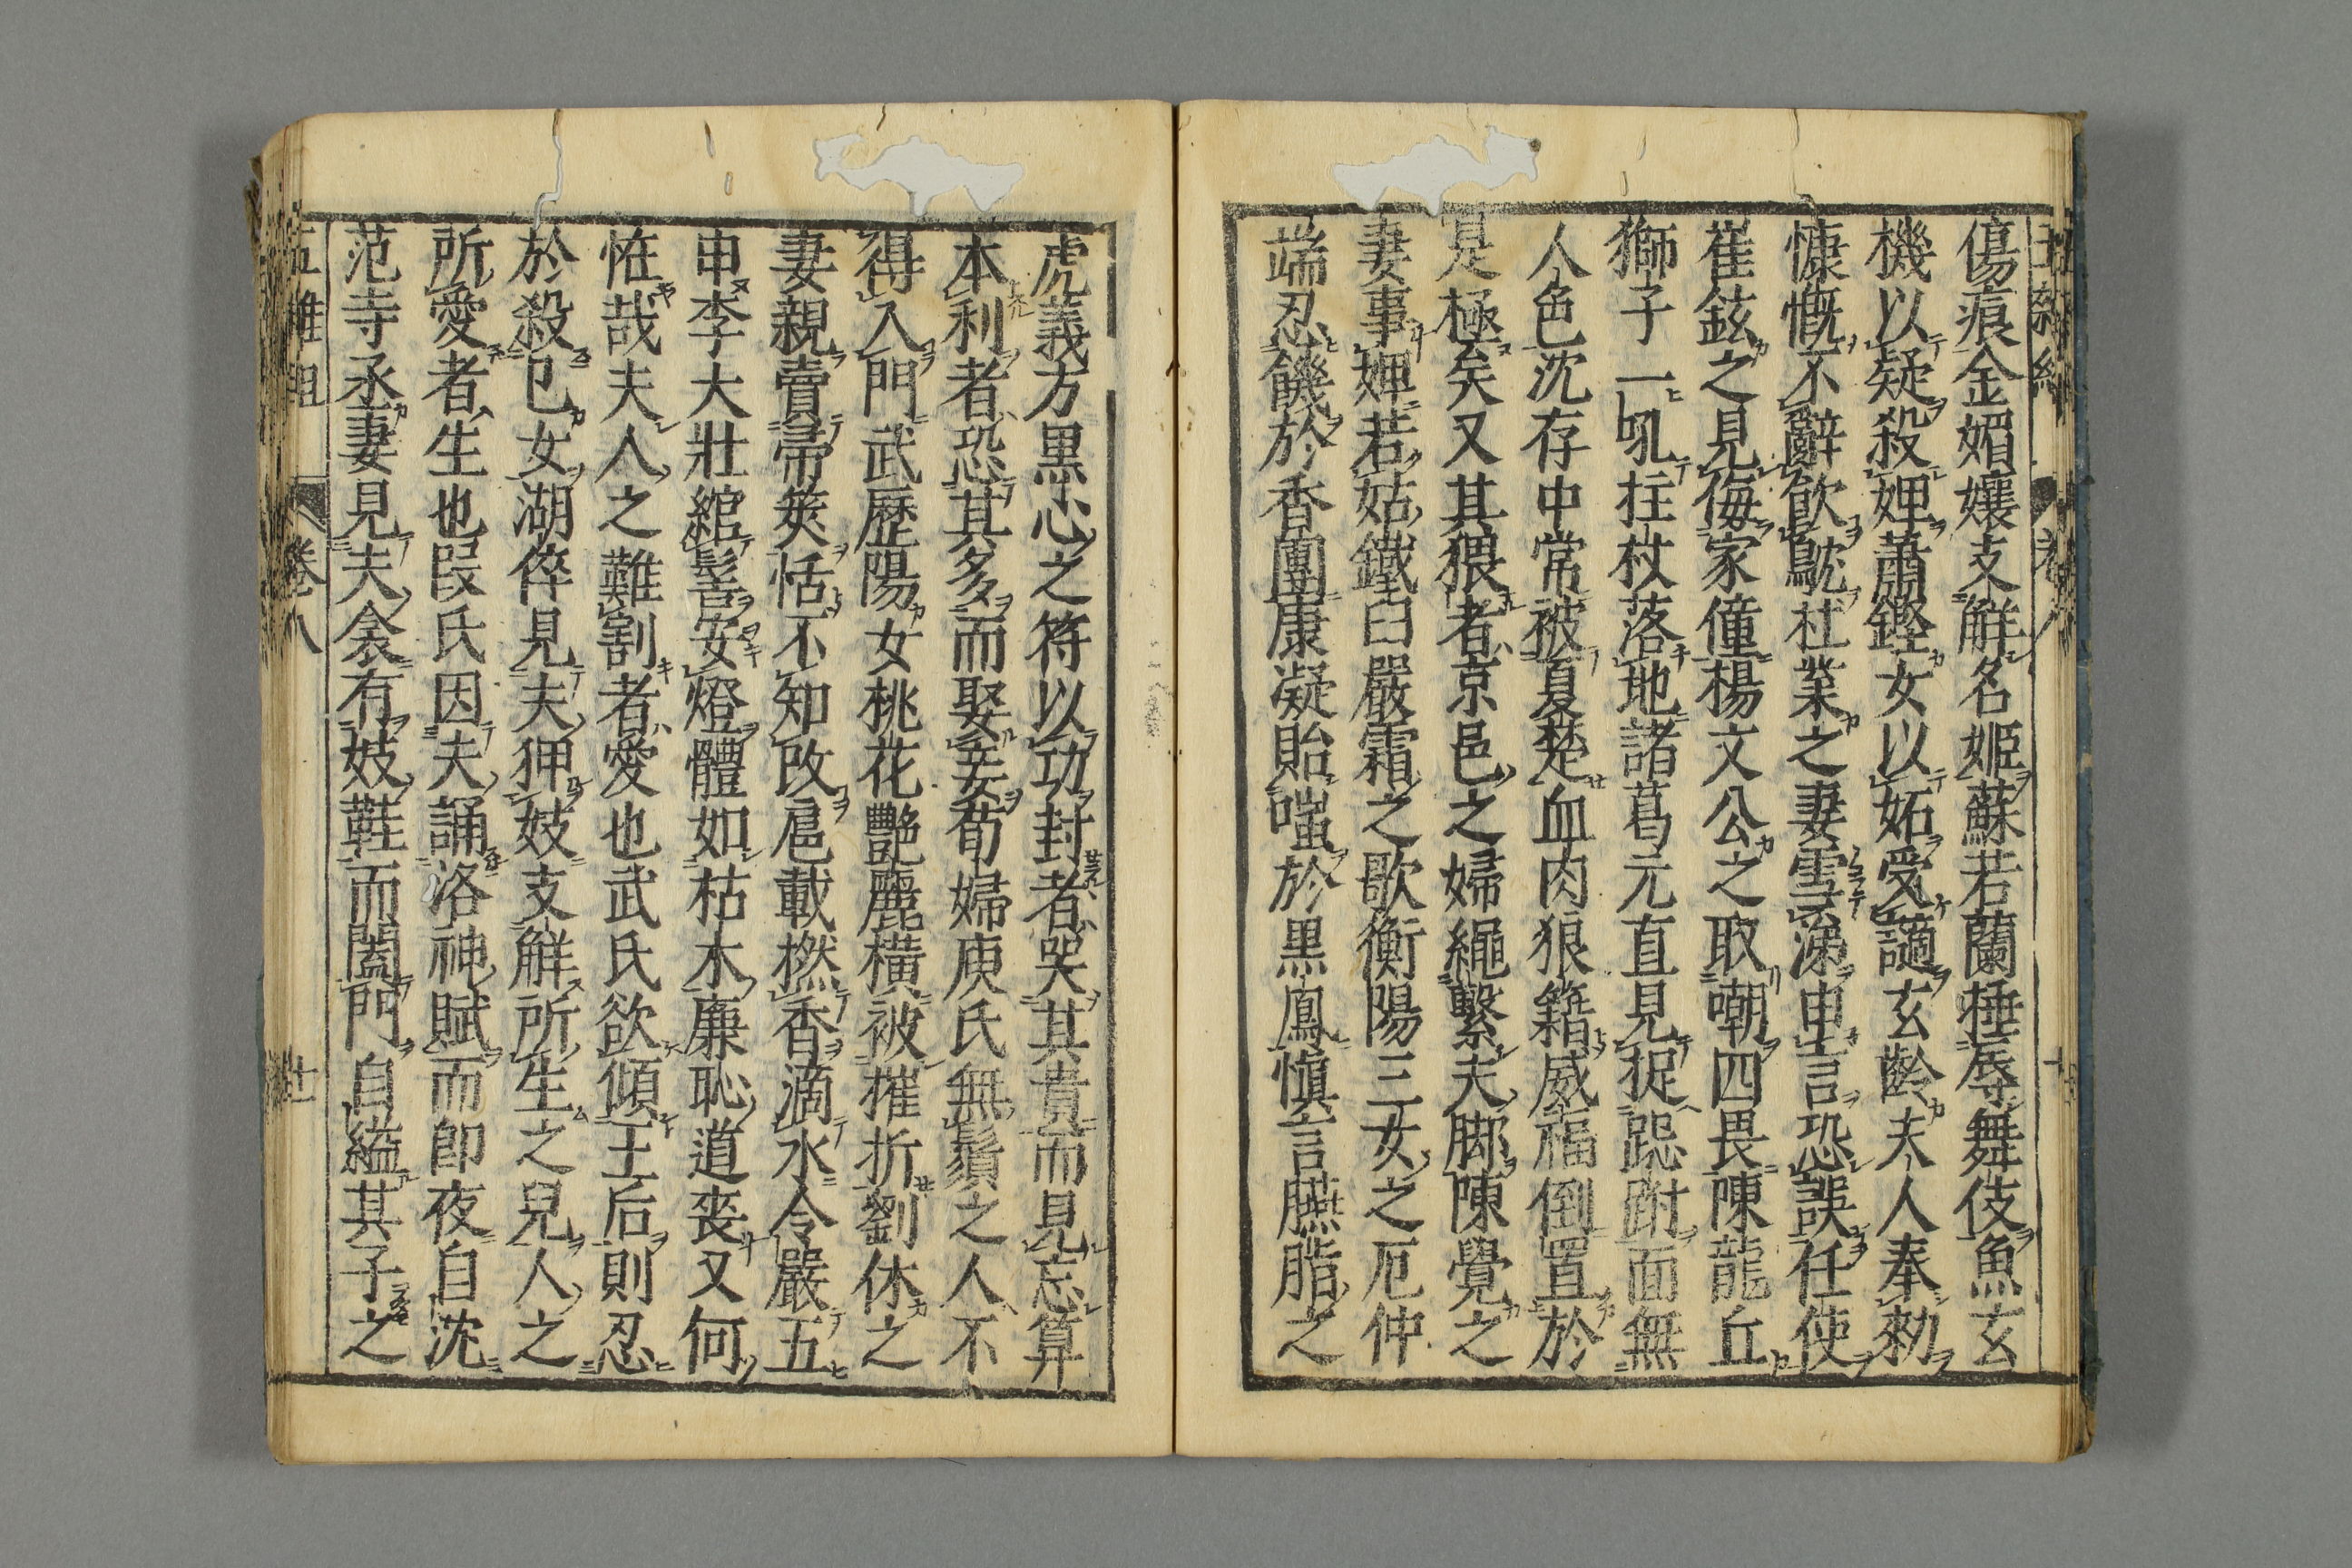 傷痕金媚孃支解名姬蘇若蘭捶辱舞伎魚玄
機以疑殺婢蕭鏗女以妬受讁玄齡夫人奉勑
慷慨不辭飮鴆杜業之妻雪涕申言恐誤任使
崔鉉之見侮家僮楊文公之取嘲四畏陳龍丘
獅子一吼拄杖落地諸葛元直見捉跽跗面無
人色沈存中常被夏楚血肉狼籍威福倒置於
是極矣又其猥者京邑之婦繩繫夫脚陳覺之
妻事婢若姑鐵臼嚴霜之歌衡陽三女之厄仲
端忍饑於香團康凝貽嗤於黒鳳愼言臙脂之
虎義方黒心之符以功封者哭其貴而見忘算
本利者恐其多而娶妾荀婦庾氏無鬚之人不
得入門武歷陽女桃花艷麗橫被摧折劉休之
妻親賣帚筴恬不知改扈載撚香滴水令嚴五
申李大壯綰髻安燈體如枯木廉恥道喪又何
恠哉夫人之難割者愛也武氏欲傾王后則忍
於殺已女湖倅見夫狎妓支解所生之兒人之
所愛者生也段氏因夫誦洛神賦而卽夜自沈
范寺丞妻見夫衾有妓鞋而闔門自縊其子之
五雜組
卷八
廿